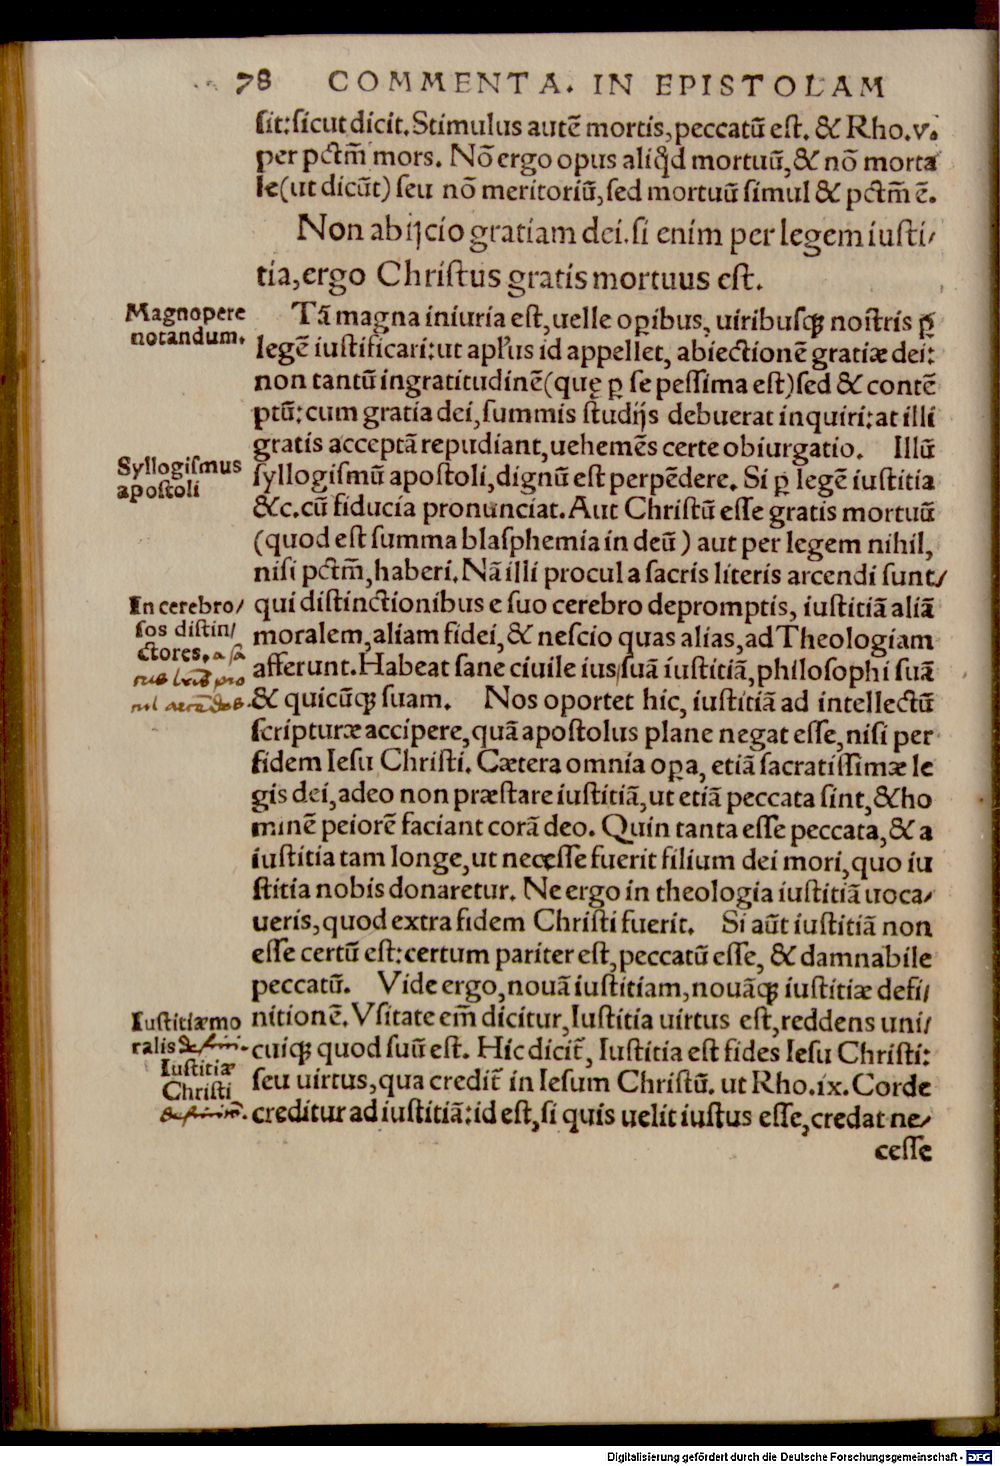 78 COMMENTA. IN EPISTOLAM
ſit:ſicut dicit.Stimulus autē mortis,peccatū eſt. & Rho.v.
per pctm̄ mors. Nō ergo opus aliqd mortuū,& nō morta
le(ut dicūt) ſeu nō meritoriū,ſed mortuū ſimul & pctm̄ ē.
Non abijcio gratiam dei.ſi enim per legem iuſti/
tia,ergo Chriſtus gratis mortuus eſt.
Magnopere
notandum.
Tā magna iniuria eſt,uelle oꝑibus, uiribuſqꝫ noſtris ꝑ
legē iuſtificari:ut apl'us id appellet, abiectionē gratiæ dei:
non tantū ingratitudinē(quę ꝑ ſe peſſima eſt)ſed & contē
ptū:cum gratia dei,ſummis ſtudijs debuerat inquiri:at illi
gratis acceptā repudiant,uehemēs certe obiurgatio. Illū
Syllogiſmus
apoſtoli
ſyllogiſmū apoſtoli,dignū eſt perpēdere. Si ꝑ legē iuſtitia
&c.cū fiducia pronunciat.Aut Chriſtū eſſe gratis mortuū
(quod eſt ſumma blaſphemia in deū) aut per legem nihil,
niſi pctm̄,haberi.Nā illi procul a ſacris literis arcendi ſunt/
In cerebro/
ſos diſtin/
ctores.
qui diſtinctionibus e ſuo cerebro depromptis, iuſtitiā aliā
moralem,aliam fidei,& neſcio quas alias,ad Theologiam
afferunt.Habeat ſane ciuile ius/ſuā iuſtitiā,philoſophi ſuā
& quicūqꝫ ſuam. Nos oportet hic, iuſtitiā ad intellectū
ſcripturæ accipere,quā apoſtolus plane negat eſſe,niſi per
fidem Ieſu Chriſti. Cætera omnia oꝑa, etiā ſacratiſſimæ le
gis dei,adeo non præſtare iuſtitiā,ut etiā peccata ſint,& ho
minē peiorē faciant corā deo. Quin tanta eſſe peccata,& a
iuſtitia tam longe,ut neceſſe fuerit filium dei mori,quo iu
ſtitia nobis donaretur. Ne ergo in theologia iuſtitiā uoca/
ueris,quod extra fidem Chriſti fuerit. Si aūt iuſtitiā non
eſſe certū eſt:certum pariter eſt,peccatū eſſe, & damnabile
peccatū. Vide ergo,nouā iuſtitiam,nouāqꝫ iuſtitiæ defi/
Iuſtitiæ mo
ralis
Iuſtitiæ
Chriſti
nitionē.Vſitate em̄ dicitur,Iuſtitia uirtus eſt,reddens uni/
cuiqꝫ quod ſuū eſt. Hic dicit̄, Iuſtitia eſt fides Ieſu Chriſti:
ſeu uirtus,qua credit̄ in Ieſum Chriſtū. ut Rho.ix.Corde
creditur ad iuſtitiā:id eſt,ſi quis uelit iuſtus eſſe,credat ne/
ceſſe
Digitalisierung gefördert durch die Deutsche Forschungsgemeinschaft - DFG